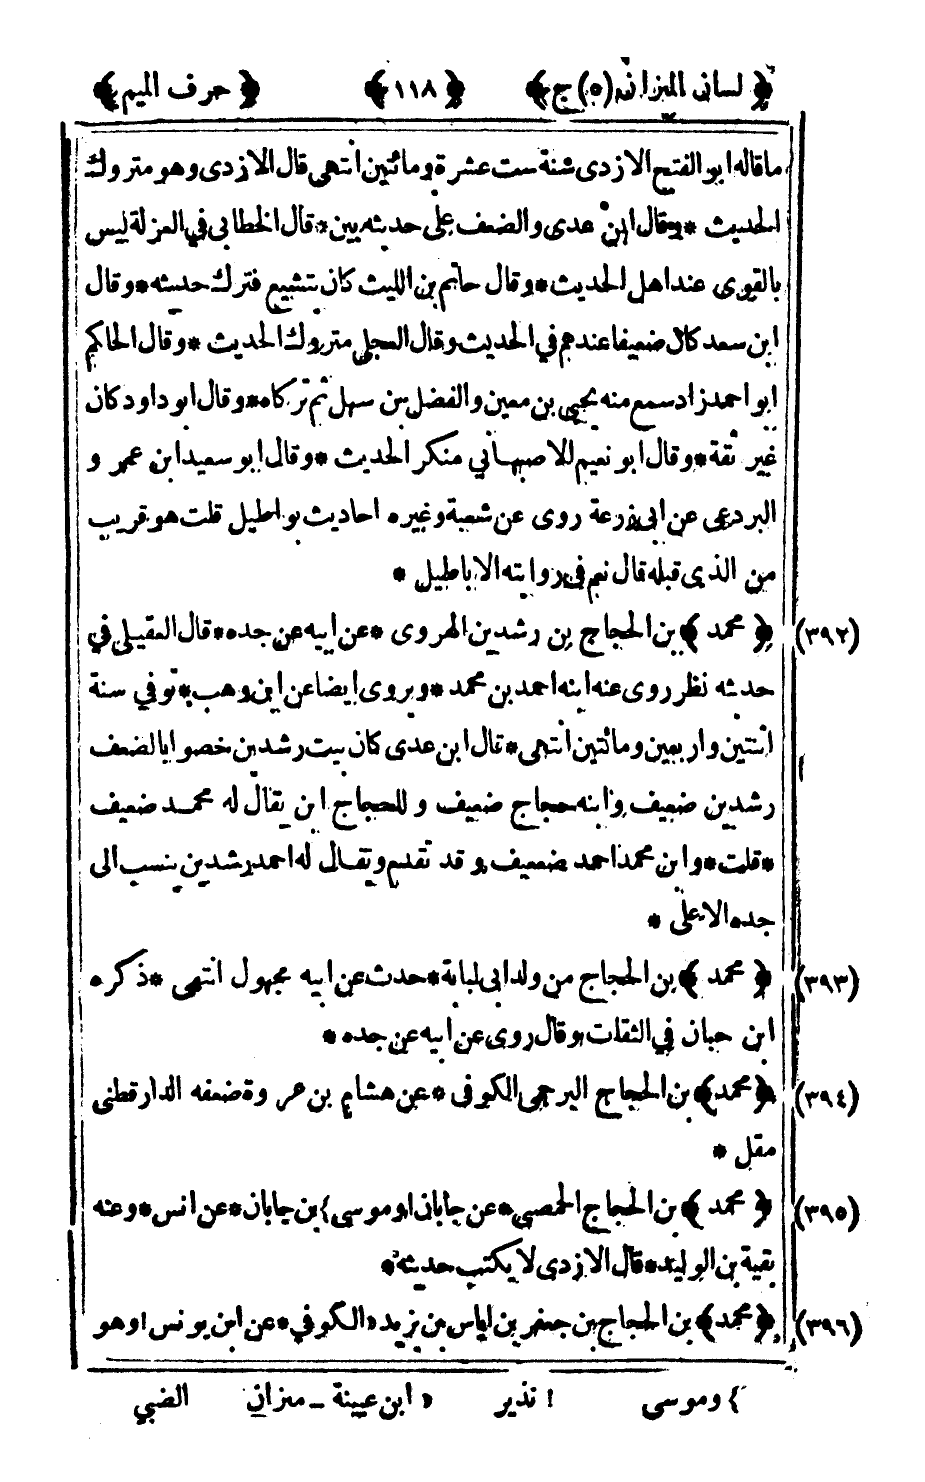 ﴿ لسان الميزان (٥) ج ﴾ ﴿ ١١٨ ﴾ ﴿ حرف الميم ﴾
ما قاله ابو الفتح الازدى سنة ست عشرة ومائتين انتهى قال الازدى وهو متروك
الحديث * وقال ابن عدى والضعف على حديثه بين * قال الخطابى في العزلة ليس
بالقوى عند اهل الحديث * وقال حاتم بن الليث كان يتشيع فترك حديثه * وقال
ابن سعد كان ضعيفا عندهم في الحديث وقال العجلى متروك الحديث * وقال الحاكم
ابو احمد زاد سمع منه يحيى بن معين والفضل بن سهل ثم تركاه * وقال ابو داود كان
غير ثقة * وقال ابو نعيم الاصبهاني منكر الحديث * وقال ابو سعيد ابن عمر و
البردعى عن ابى زرعة روى عن شعبة وغيره احاديث بواطيل قلت هو قريب
من الذى قبله قال نعم في روايته الاباطيل *
(٣٩٢) ﴿ محمد ﴾ بن الحجاج بن رشدين الهروى * عن ابيه عن جده * قال العقيلى في
حديثه نظر روى عنه ابنه احمد بن محمد * ويروى ايضا عن ابن وهب * توفي سنة
اثنتين واربعين ومائتين انتهى * قال ابن عدى كان بيت رشدين خصوا بالضعف
رشدين ضعيف وابنه حجاج ضعيف و للحجاج ابن يقال له محمد ضعيف
* قلت * وابن محمد احمد ضعيف و قد تقدم ويقال له احمد رشدين ينسب الى
جده الاعلى *
(٣٩٣) ﴿ محمد ﴾ بن الحجاج من ولد ابى لبابة * حدث عن ابيه مجهول انتهى * ذكره
ابن حبان في الثقات وقال روى عن ابيه عن جده *
(٣٩٤) ﴿ محمد ﴾ بن الحجاج البرجمى الكوفى * عن هشام بن عر وة ضعفه الدارقطنى
مقل *
(٣٩٥) ﴿ محمد ﴾ بن الحجاج الحمصى * عن جابان او موسى } بن جابان * عن انس * وعنه
بقية بن الوليد * قال الازدى لا يكتب حديثه *
(٣٩٦) ﴿ محمد ﴾ بن الحجاج بن جعفر بن اياس بن يزيد الكوفي * عن ابن يونس اوهو
} وموسى ا نذير ابن عيينة ـ ميزان الضبي